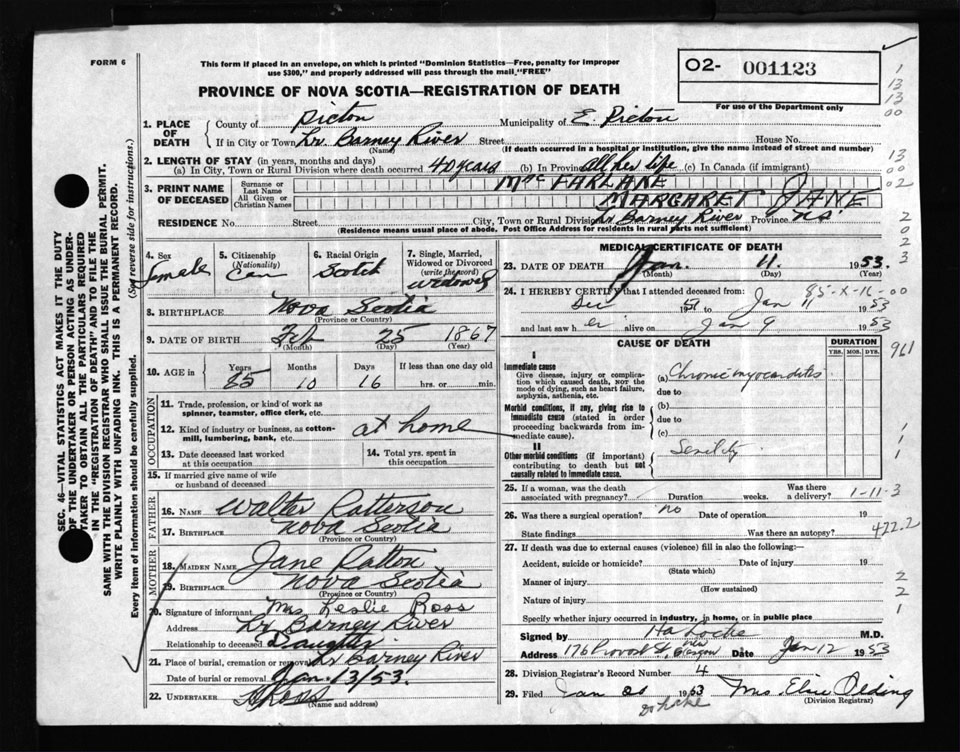 FORM 6
This form if placed in an envelope, on which is printed "Dominion Statistics—Free, penalty for improper
use $300," and properly addressed will pass through the mail "FREE"
02- 001123
PROVINCE OF NOVA SCOTIA—REGISTRATION OF DEATH
For use of the Department only
1. PLACE OF DEATH
County of Pictou Municipality of E. Pictou
If in City or Town Lr. Barney River Street House No.
(Name) (If death occurred in a hospital or institution, give the name instead of street and number)
2. LENGTH OF STAY (in years, months and days)
(a) In City, Town or Rural Division where death occurred 40 years (b) In Province All her life (c) In Canada (if immigrant)
3. PRINT NAME OF DECEASED
Surname or Last Name MacFARLANE
All Given or Christian Names MARGARET JANE
RESIDENCE No. Street City, Town or Rural Division Lr Barney River Province NS
(Residence means usual place of abode. Post Office Address for residents in rural parts not sufficient)
4. Sex female
5. Citizenship (Nationality) Can
6. Racial Origin Scotch
7. Single, Married, Widowed or Divorced (write the word) widowed
8. BIRTHPLACE Nova Scotia
(Province or Country)
9. DATE OF BIRTH Feb 25 1867
(Month) (Day) (Year)
10. AGE in Years Months Days If less than one day old
85 10 16 hrs. or min.
OCCUPATION
11. Trade, profession, or kind of work as
spinner, teamster, office clerk, etc.
12. Kind of industry or business, as cotton-
mill, lumbering, bank, etc. at home
13. Date deceased last worked at this occupation
14. Total yrs. spent in this occupation
15. If married give name of wife
or husband of deceased
FATHER
16. NAME Walter Patterson
17. BIRTHPLACE Nova Scotia
(Province or Country)
MOTHER
18. MAIDEN NAME Jane Patton
19. BIRTHPLACE Nova Scotia
(Province or Country)
20. Signature of informant Mrs. Leslie Ross
Address Lr Barney River
Relationship to deceased Daughter
21. Place of burial, cremation or removal Lr Barney River
Date of burial or removal Jan. 13/53.
22. UNDERTAKER Ross
(Name and address)
MEDICAL CERTIFICATE OF DEATH
23. DATE OF DEATH Jan. 11. 1953.
(Month) (Day) (Year)
85-X-16-00
24. I HEREBY CERTIFY that I attended deceased from:
Dec 1951 to Jan 11 1953
and last saw her alive on Jan 9 1953
CAUSE OF DEATH
DURATION
YRS. MOS. DYS.
961
I
Immediate cause
Give disease, injury or complica-
tion which caused death, NOT the
mode of dying, such as heart failure,
asphyxia, asthenia, etc.
(a) Chronic myocarditis
due to
Morbid conditions, if any, giving rise to
immediate cause (stated in order
proceeding backwards from im-
mediate cause).
(b)
due to
(c)
II
Other morbid conditions (if important)
contributing to death but not causally
related to immediate cause.
Senility
25. If a woman, was the death
associated with pregnancy? Duration weeks.
Was there
a delivery? 1-11-3
26. Was there a surgical operation? no Date of operation 19
State findings Was there an autopsy? 422.2
27. If death was due to external causes (violence) fill in also the following:—
Accident, suicide or homicide? Date of injury 19
(State which)
Manner of injury
(How sustained)
Nature of injury
Specify whether injury occurred in industry, in home, or in public place
Signed by Ha Locke M.D.
Address 176 Provost St, New Glasgow Date Jan 12 1953
28. Division Registrar's Record Number 4
29. Filed Jan 1953 Mrs. Elsie Olding
(Division Registrar)
SEC. 46—VITAL STATISTICS ACT MAKES IT THE DUTY
OF THE UNDERTAKER OR PERSON ACTING AS UNDER-
TAKER TO OBTAIN ALL THE PARTICULARS REQUIRED
IN THE "REGISTRATION OF DEATH" AND TO FILE THE
SAME WITH THE DIVISION REGISTRAR WHO SHALL ISSUE THE BURIAL PERMIT.
WRITE PLAINLY WITH UNFADING INK. THIS IS A PERMANENT RECORD.
Every item of information should be carefully supplied. (See reverse side for instructions.)
1
13
13
00
13
00
02
2
0
2
3
1
1
1
2
2
1